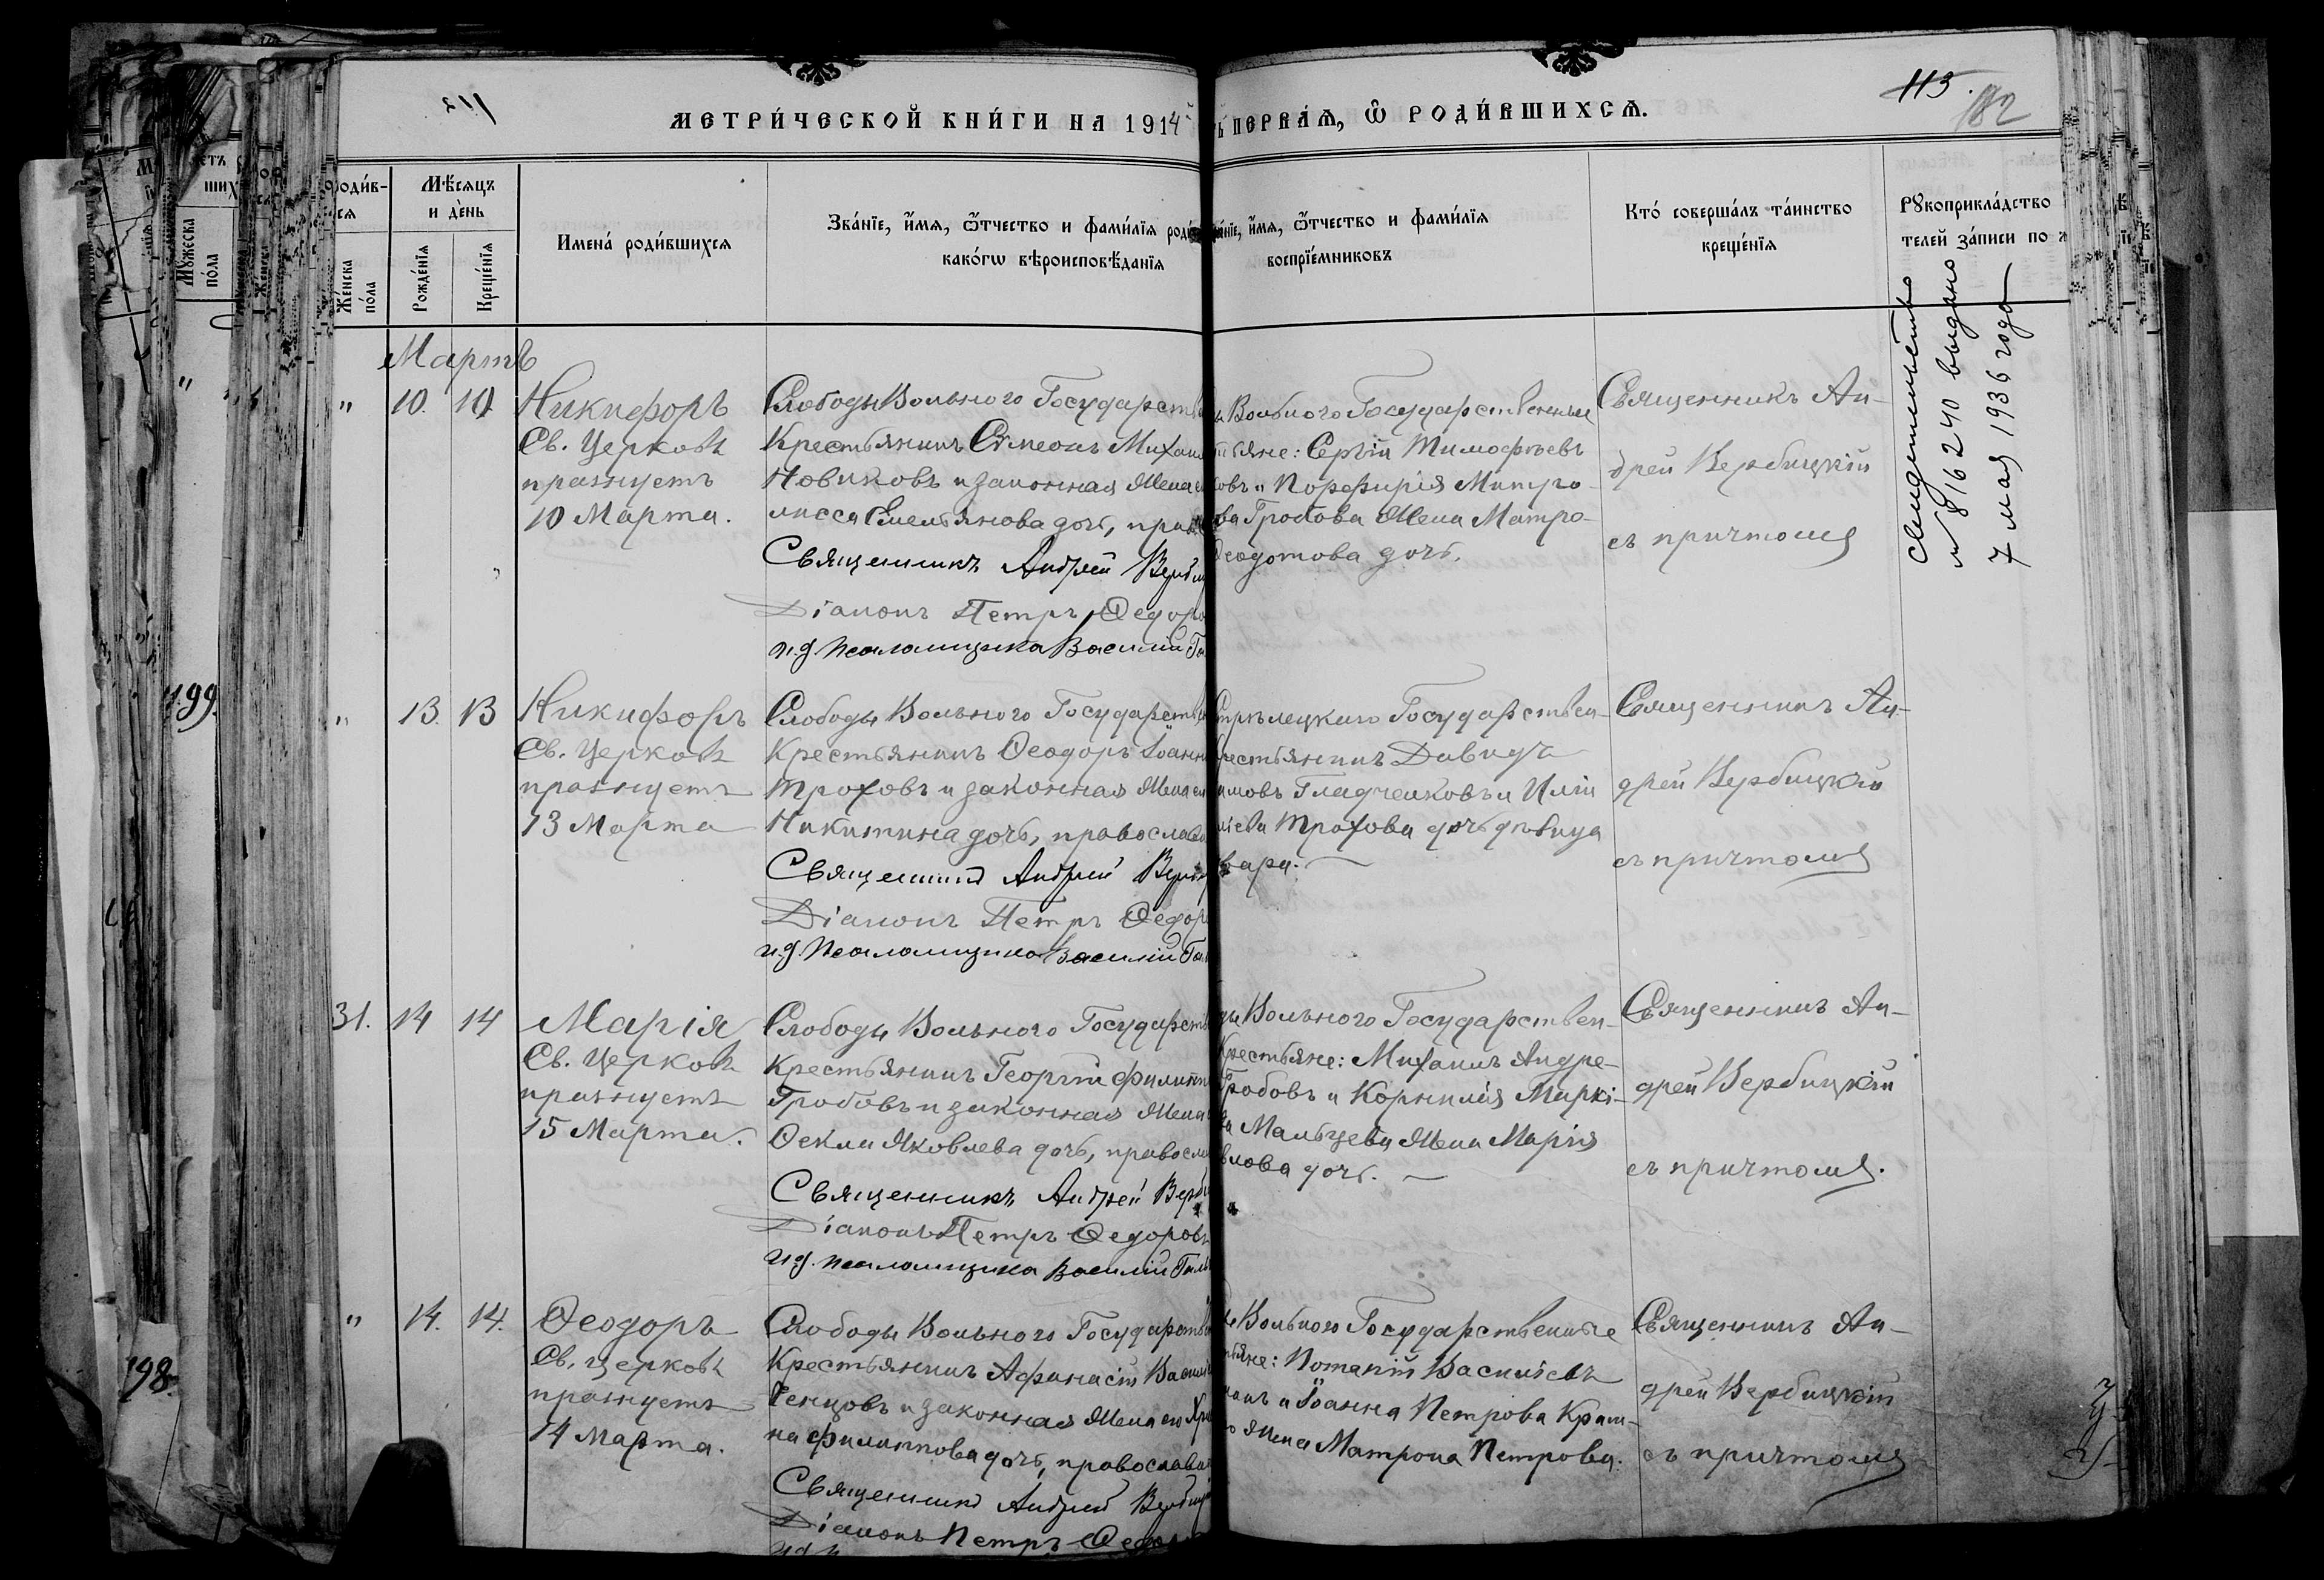 115.
182
МЕТРИ́ЧЕСКОЙ КНИ́ГИ НА 1914
ПЕРВАѦ, Ѿ РОДИ́ВШИХСѦ.
Же́нска по́ла
Мѣ́сѧцъ и де́нь
Рожде́нїѧ
Креще́нїѧ
Имена́ роди́вшихсѧ
Зва́нїе, и́мѧ, ѻ́тчество и фами́лїѧ роди
како́гѡ вѣроисповѣ́данїѧ
и́мѧ, ѻ́тчество и фами́лїѧ
воспрїе́мниковъ
Кто́ соверша́лъ та́инство
креще́нїѧ
Рꙋкоприкла́дство
телей за́писи по
Мартъ
" 10. 10.
Никифоръ
Св. Церковь
празнуетъ
10 Марта.
Слободы Вольного Государств
Крестьянинъ Симеонъ Михаи
Новиковъ и законная жена е
лисса Емельянова дочь, прав
Священникъ Андрей Верби
Діаконъ Петръ Ѳедоро
и.д. псаломщика Василій Г
Вольного Государственные
тьяне: Сергій Тимофѣевъ
овъ и Порфирія Митро-
ва Гробова жена Матро-
Ѳеодотова дочь.
Священникъ Ан-
дрей Вербицкій
съ причтомъ
Свидетельство
№ 816240 выдано
7 мая 1936 года
199.
" 13. 13
Никифоръ
Св. Церковь
празнуетъ
13 Марта
Слободы Вольного Государств
Крестьянинъ Ѳеодоръ Іоанн
Трофовъ и законная жена е
Никитина дочь, православ
Священникъ Андрей Верби
Діаконъ Петръ Ѳедор
и.д. псаломщика Василій Г
Стрѣлецкаго Государствен-
рестьянинъ Давидъ
имовъ Гладченковъ и Иліи
Трофова дочь дѣвица
вара.
Священникъ Ан-
дрей Вербицкій
съ причтомъ
31. 14 14
Марія
Св. Церковь
празнуетъ
15 Марта.
Слободы Вольного Государств
Крестьянинъ Георгій Филипп
Гробовъ и законная жена
Ѳекла Яковлева дочь, правосла
Священникъ Андрей Верби
Діаконъ Петръ Ѳедоровъ
и.д. псаломщика Василій Галь
Вольного Государствен-
Крестьяне: Михаилъ Андре-
Гробовъ и Корнилія Маркі-
Мальцева жена Марія
влова дочь.
Священникъ Ан-
дрей Вербицкій
съ причтомъ.
198.
" 14. 14.
Ѳеодоръ
Св. Церковь
празнуетъ
14 Марта.
Слободы Вольного Государств
Крестьянинъ Афанасій Васил
Генцовъ и законная жена его
на Филиппова дочь, православ
Священникъ Андрей Вербиц
Діаконъ Петръ Ѳедор
Вольного Государственные
тьяне: Потапій Васильевъ
и Іоанна Петрова
жена Матрона Петрова.
Священникъ Ан-
дрей Вербицкій
съ причтомъ